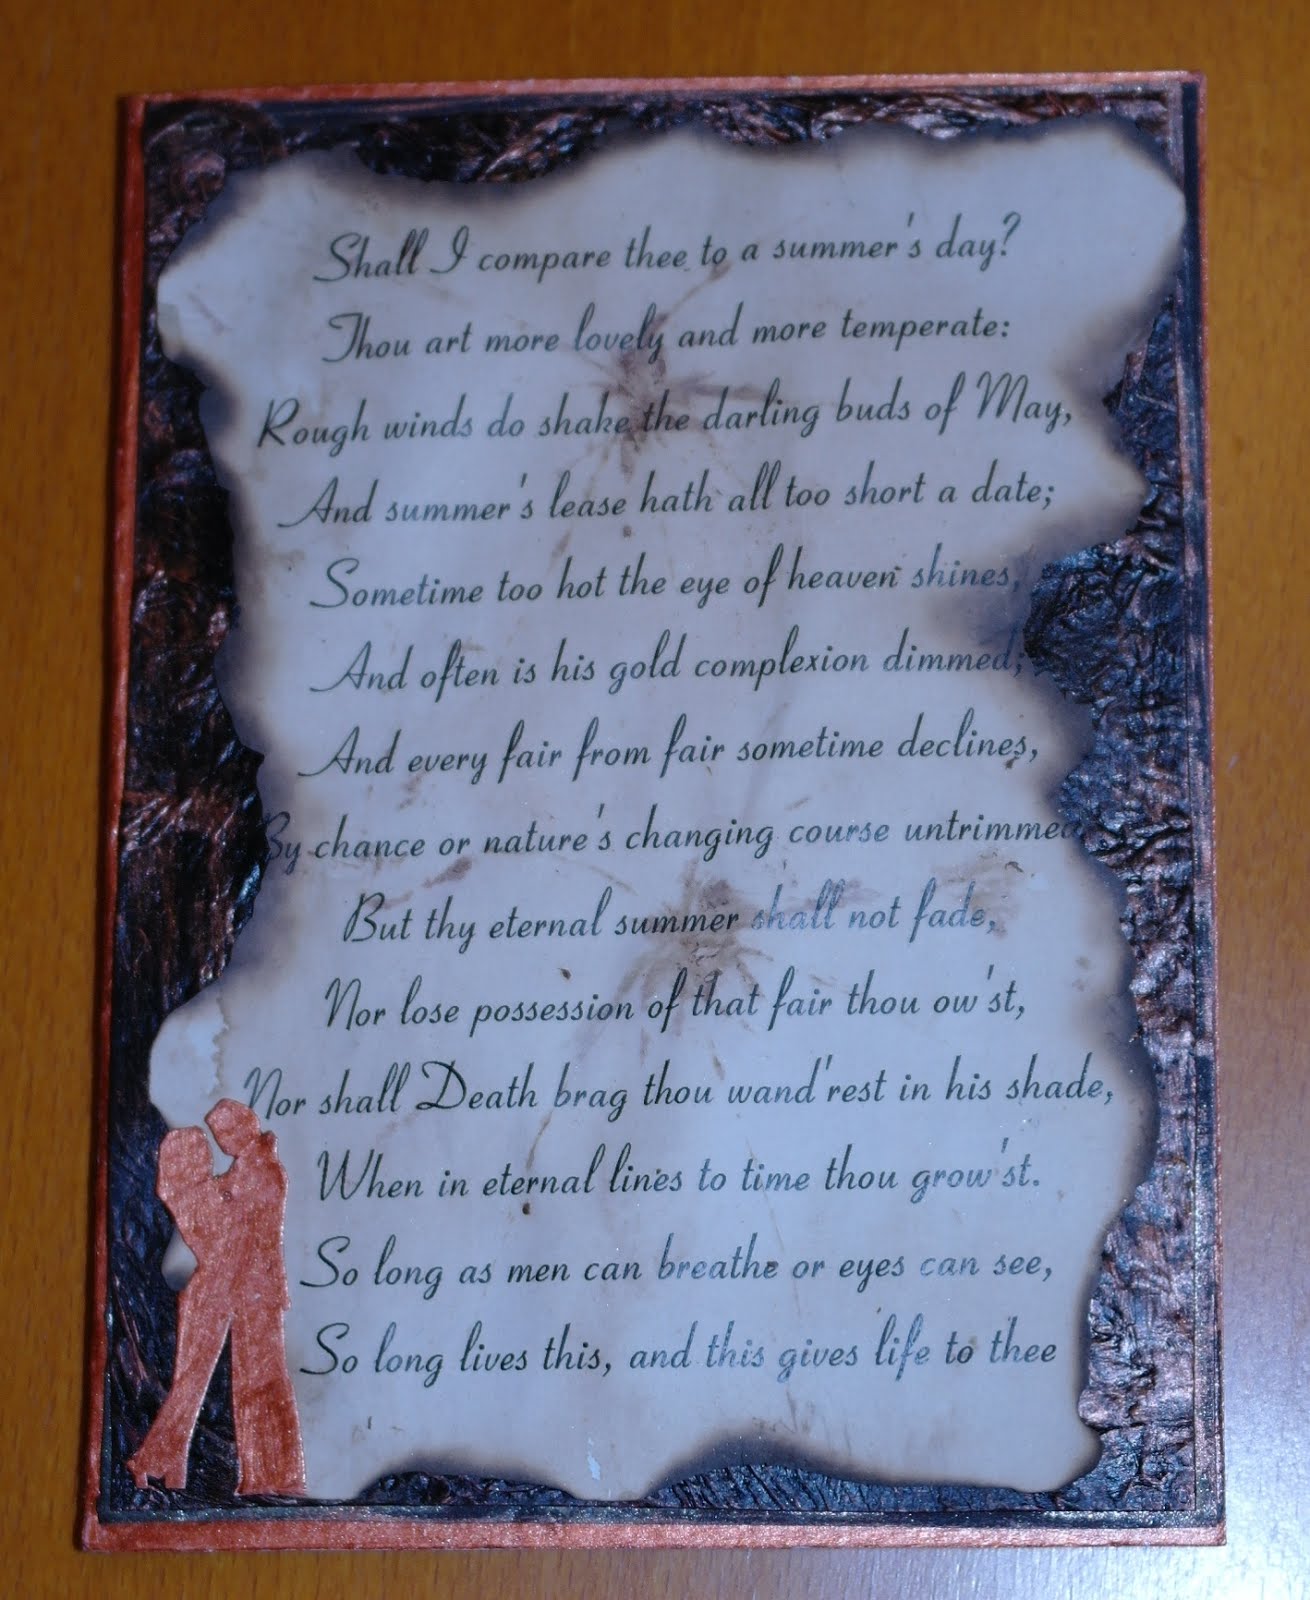 Shall I compare thee to a summer's day?
Thou art more lovely and more temperate:
Rough winds do shake the darling buds of May,
And summer's lease hath all too short a date;
Sometime too hot the eye of heaven shines,
And often is his gold complexion dimmed;
And every fair from fair sometime declines,
By chance or nature's changing course untrimmed
But thy eternal summer shall not fade,
Nor lose possession of that fair thou ow'st,
Nor shall Death brag thou wand'rest in his shade,
When in eternal lines to time thou grow'st.
So long as men can breathe or eyes can see,
So long lives this, and this gives life to thee